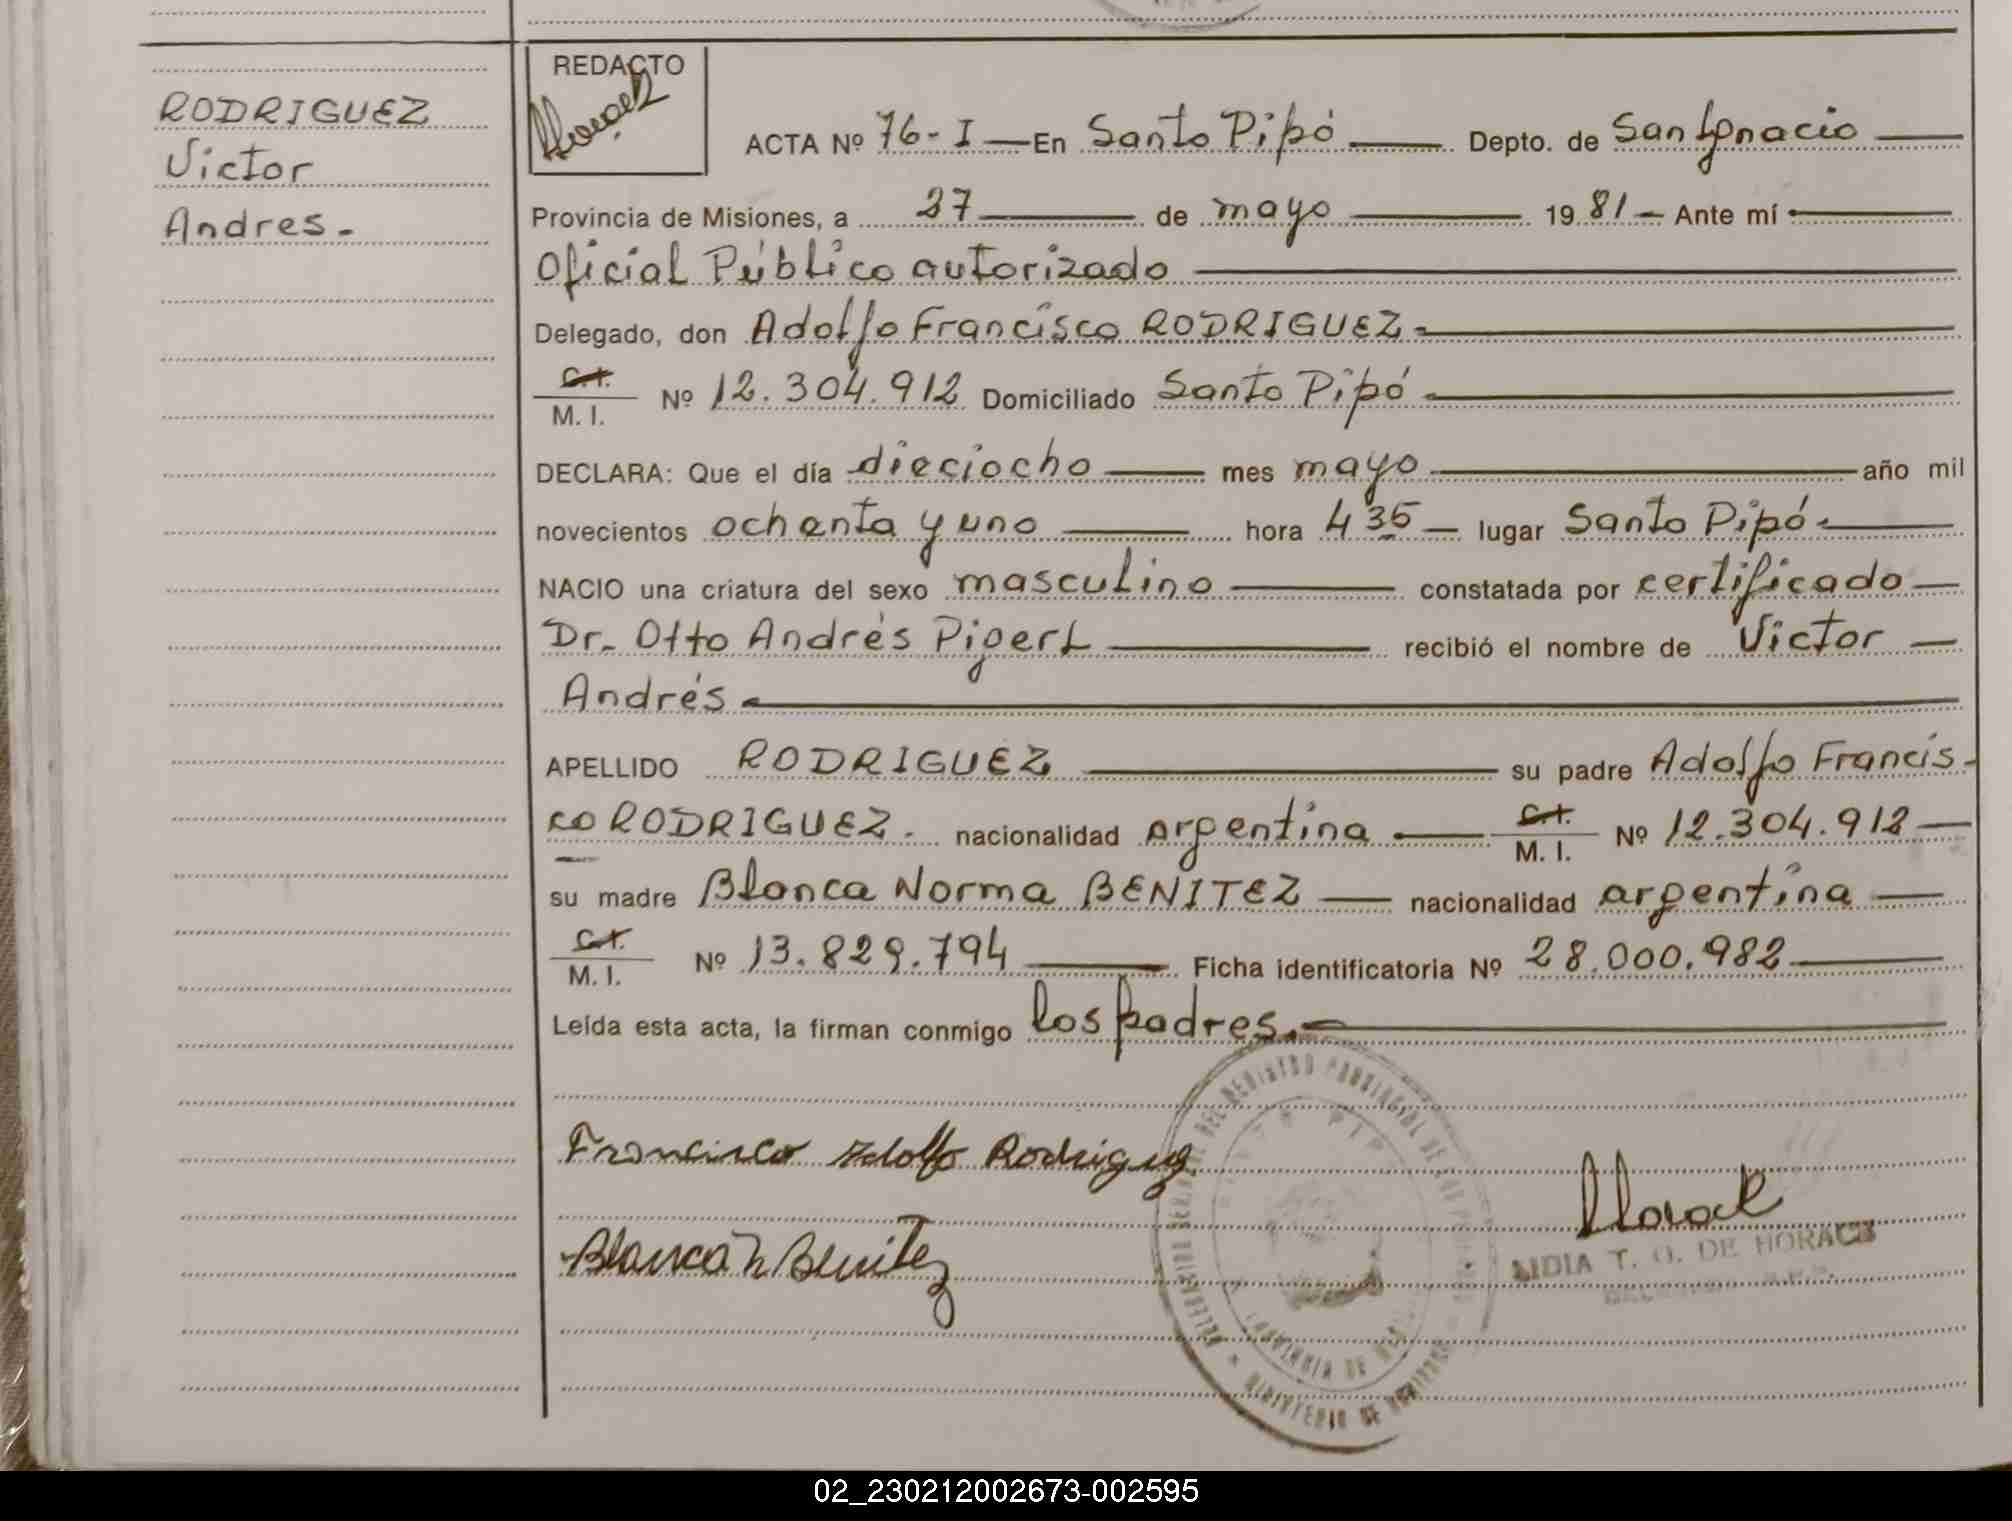 RODRIGUEZ
Victor
Andres.-
REDACTO
ACTA Nº 76-I — En Santo Pipó — Depto. de San Ignacio —
Provincia de Misiones, a 27 — de mayo — 1981 — Ante mí —
Oficial Público autorizado —
Delegado, don Adolfo Francisco RODRIGUEZ —
C.I.
M. I. Nº 12.304.912 Domiciliado Santo Pipó —
DECLARA: Que el día dieciocho — mes mayo — año mil
novecientos ochenta y uno — hora 4 35 — lugar Santo Pipó —
NACIO una criatura del sexo masculino — constatada por certificado —
Dr. Otto Andrés Pigerl — recibió el nombre de Victor —
Andrés —
APELLIDO RODRIGUEZ — su padre Adolfo Francis-
co RODRIGUEZ. nacionalidad argentina — C.I.
M. I. Nº 12.304.912 —
su madre Blanca Norma BENITEZ — nacionalidad argentina —
C.I.
M. I. Nº 13.829.794 — Ficha identificatoria Nº 28.000.982 —
Leída esta acta, la firman conmigo los padres. —
Francisco Adolfo Rodriguez
Blanca N Benitez
LIDIA T. O. DE HORACEK
PROVINCIA DE
MINISTERIO DE
02_230212002673-002595